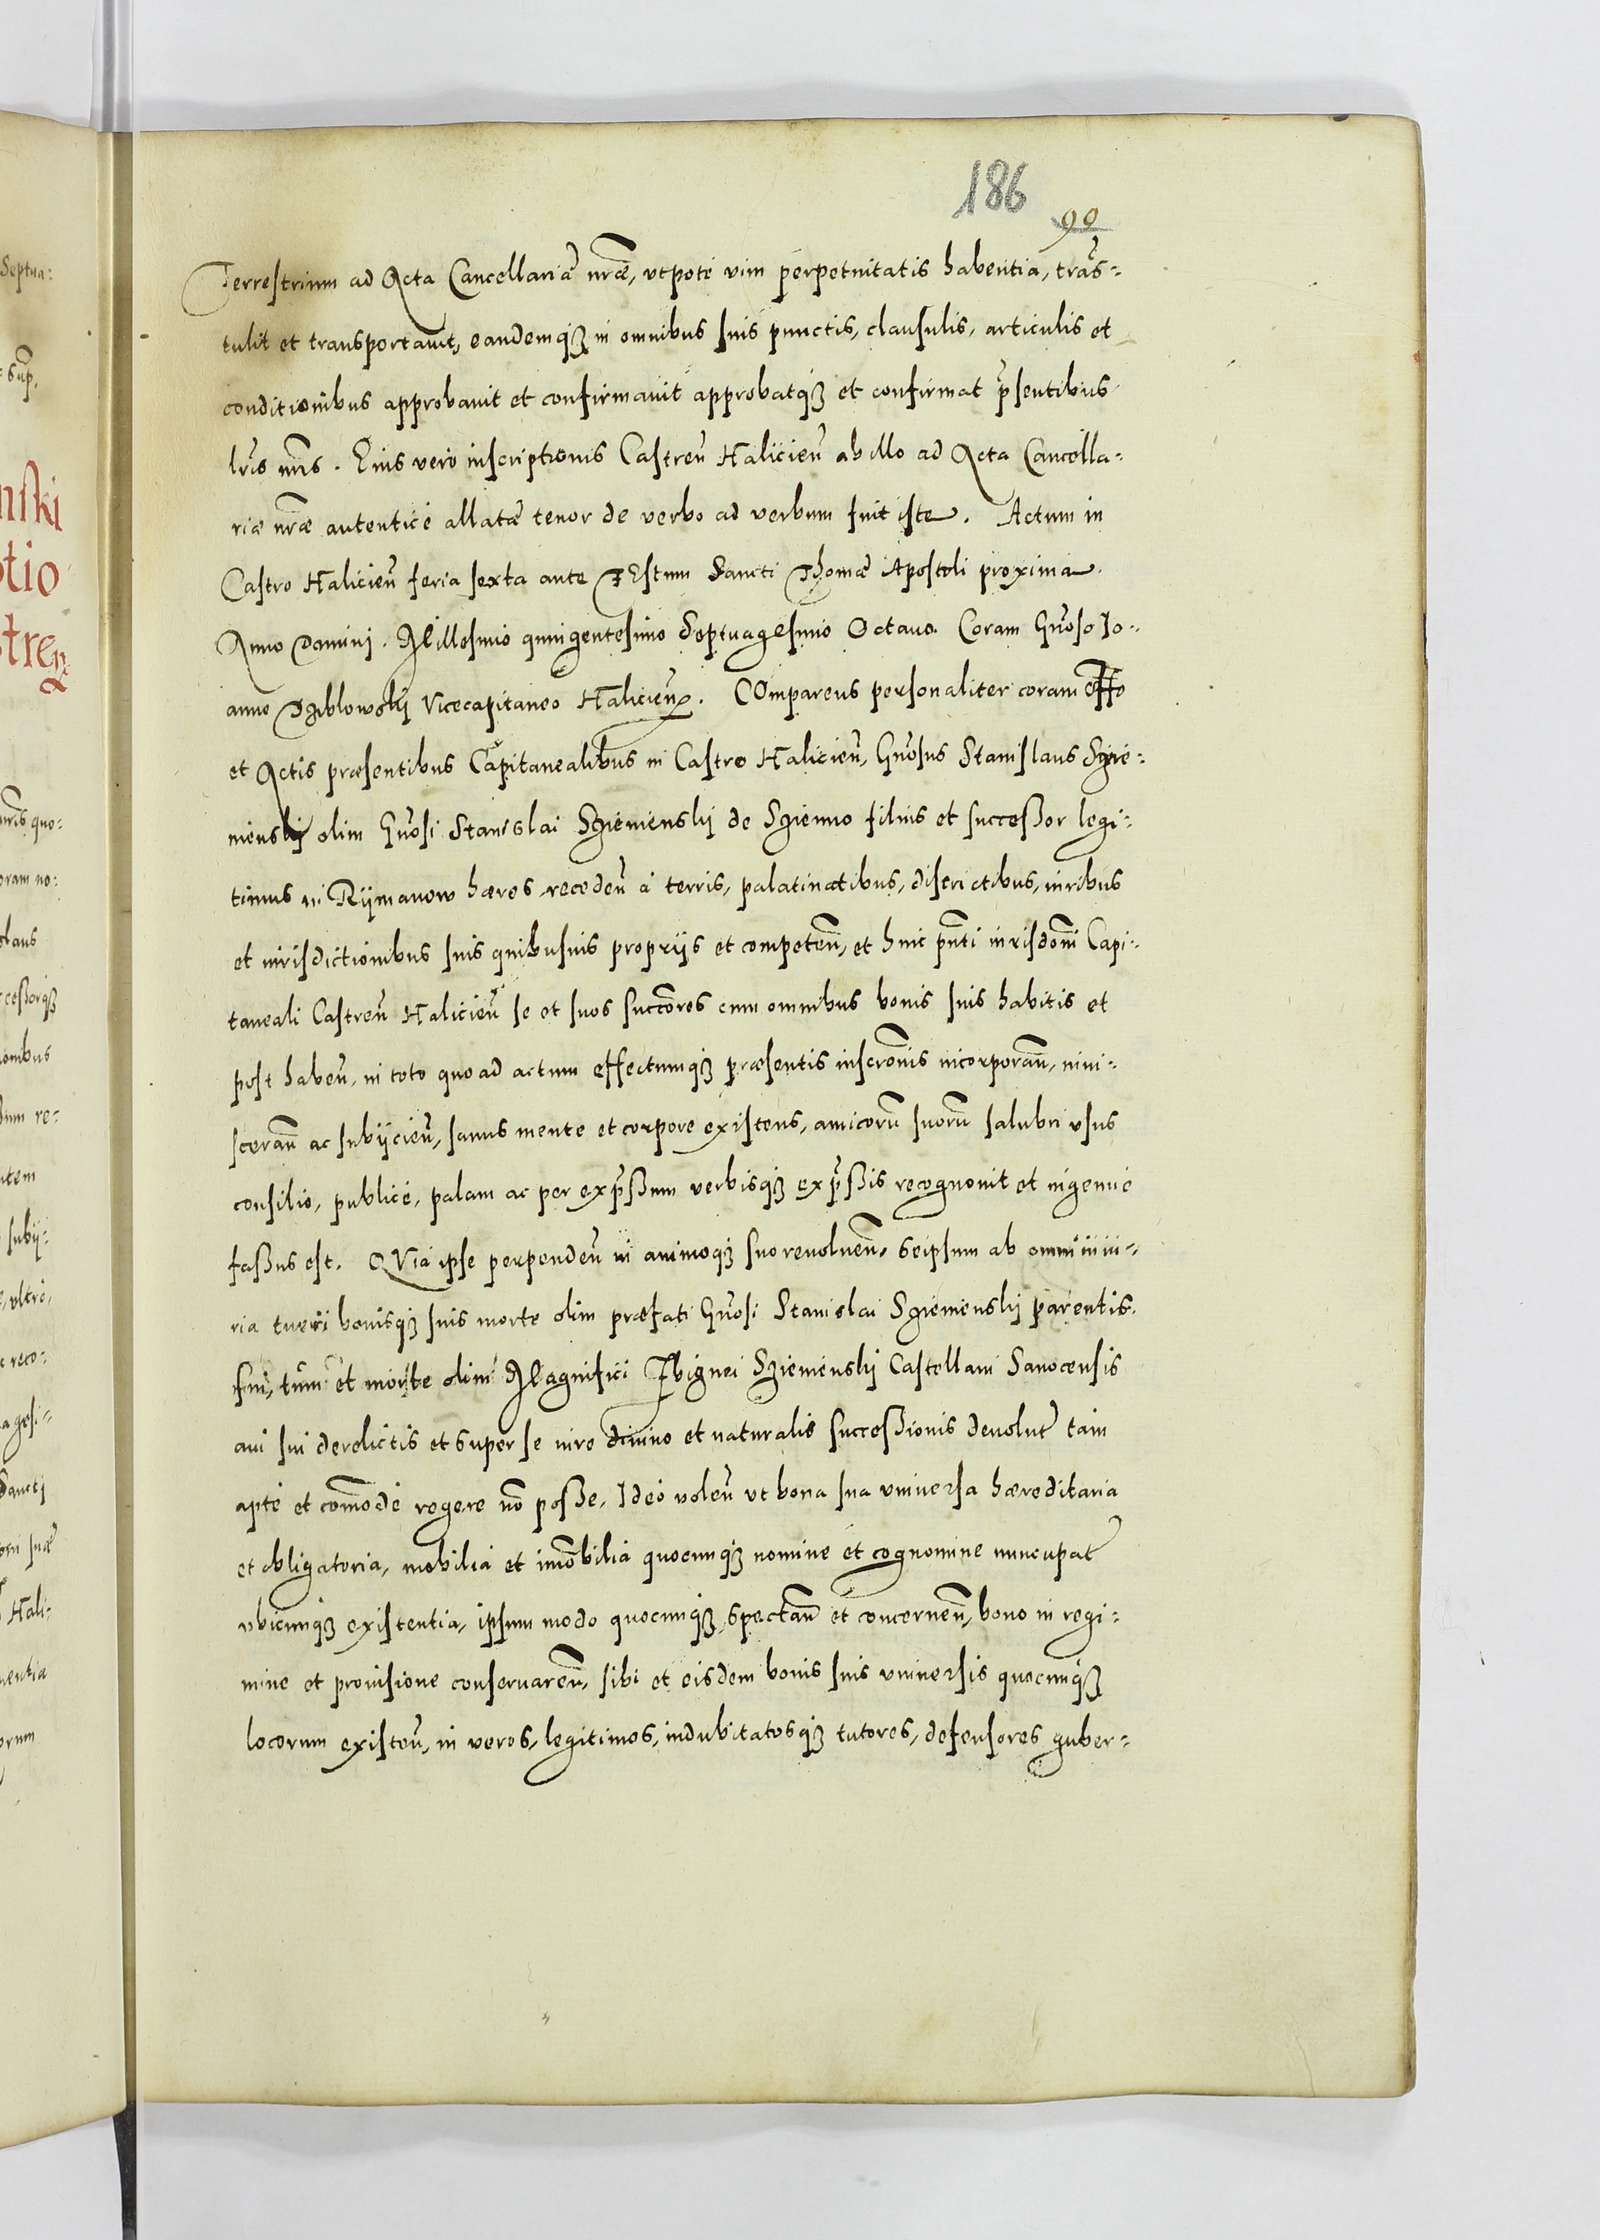 186
90
Terrestrium ad Acta Cancellariæ nrãe, vtpote vim perpetuitatis habentia, trãs-
tulit et transportauit, eandemq3 in omnibus suis punctis, clausulis, articulis et
conditionibus approbauit et confirmauit approbatq3 et confirmat p̃sentibus
lr̃is nr̃is. Eius vero inscriptionis Castreñ Halicieñ ab illo ad Acta Cancella-
riæ nrãe autenticè allatæ tenor de verbo ad verbum fuit iste. Actum in
Castro Halicieñ feria sexta ante Festum Sancti Thomæ Apostoli proxima.
Anno Domini. Millesimo quingentesimo Septuagesimo Octauo. Coram Gñoso Jo-
anne Vicecapitaneo Halicieñ. COmparens personaliter coram offo
et Actis præsentibus Capitanealibus in Castro Halicieñ, Gñosus Stanislaus Szie-
nienskÿ olim Gñosi Stanislai Szienienskÿ de Szienno filius et successor legi-
timus in Rÿmanow hæres recedeñ à terris, palatinatibus, districtibus, iuribus
et iurisdictionibus suis quibusuis proprijs et competeñ, et huic pñti iurisdõni Capi-
taneali Castreñ Halicieñ se et suos succõres cum omnibus bonis suis habitis et
post habeñ, in toto quo ad actum effectumq3 præsentis inscrõnis incorporañ, inui-
scerañ ac subijcieñ, sanus mente et corpore existens, amicorũ suorũ salubri vsus
consilio, publicè, palam ac per exp̃ssum verbisq3 exp̃ssis recognouit et ingenuè
fassus est. QVia ipse perpendeñ in animoq3 suo reuolueñ, seipsum ab omni iniu-
ria tueri bonisq3 suis morte olim præfati Gñosi Stanislai Szienienskÿ parentis
sui, tum et morte olim Magnifici Zbignei Szienienskÿ Castellani Sanocensis
aui sui derelictis et super se iure diuino et naturalis successionis deuolut̃ tam
aptè et com̃odè regere nõ posse. Ideo voleñ vt bona sua vniuersa hæreditaria
et obligatoria, mobilia et im̃obilia quocunq3 nomine et cognomine nuncupat̃
vbicunq3 existentia, ipsum modo quocunq3 spectañ et concerneñ, bono in regi-
mine et prouisione conseruareñ, sibi et eisdem bonis suis vniuersis quocunq3
locorum existeñ, in veros, legitimos, indubitatosq3 tutores, defensores guber-